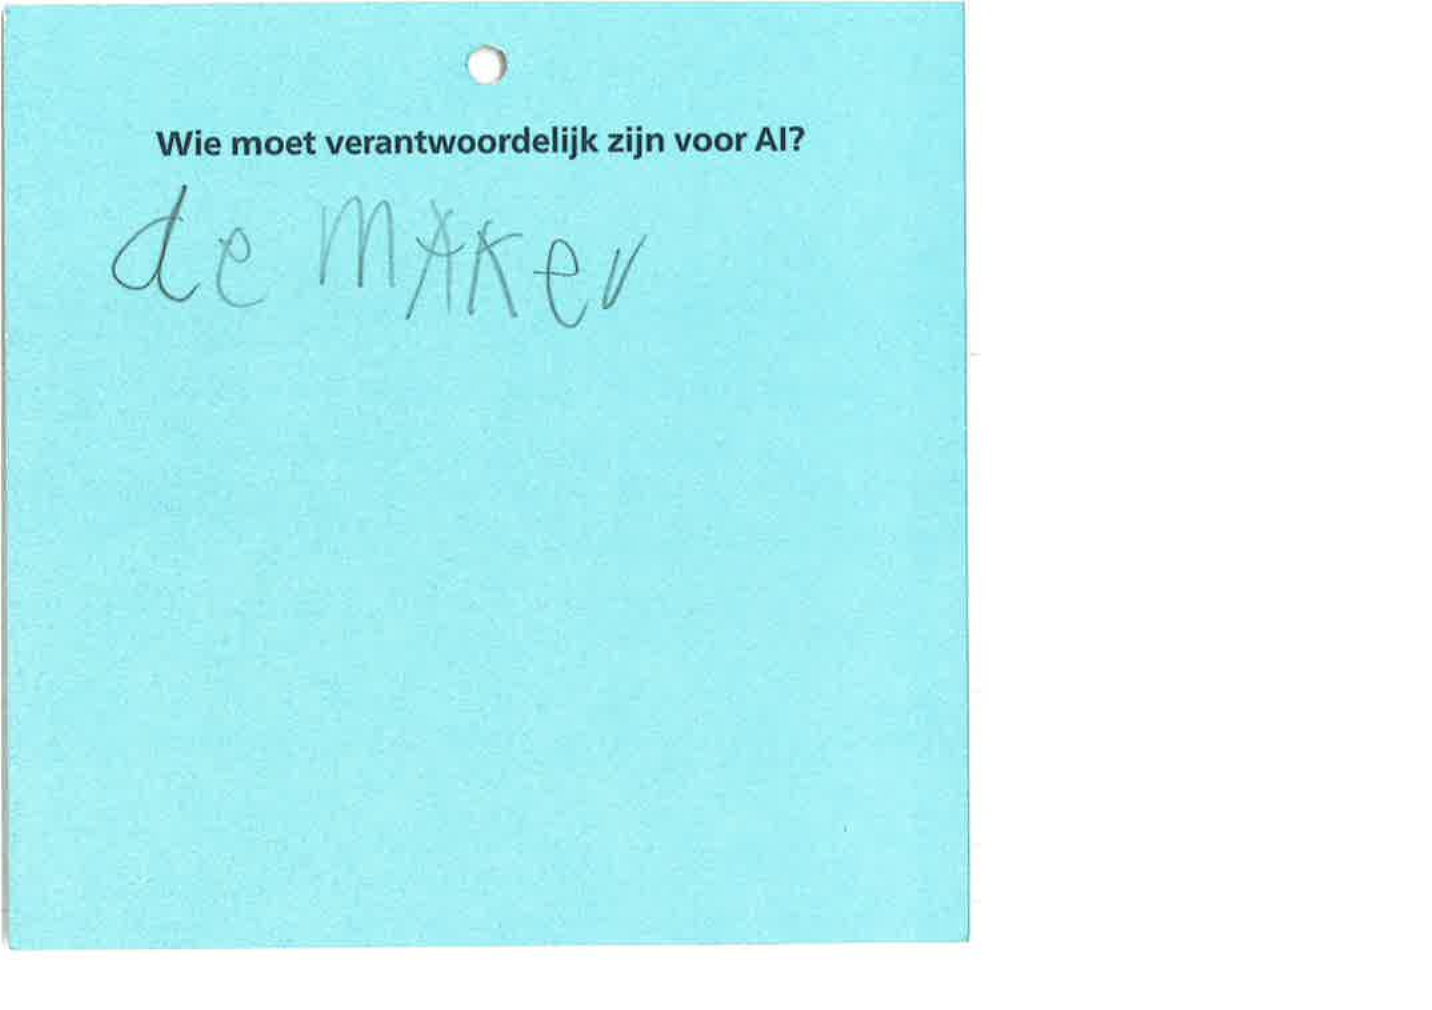 Wie moet verantwoordelijk zijn voor AI?
de mAker